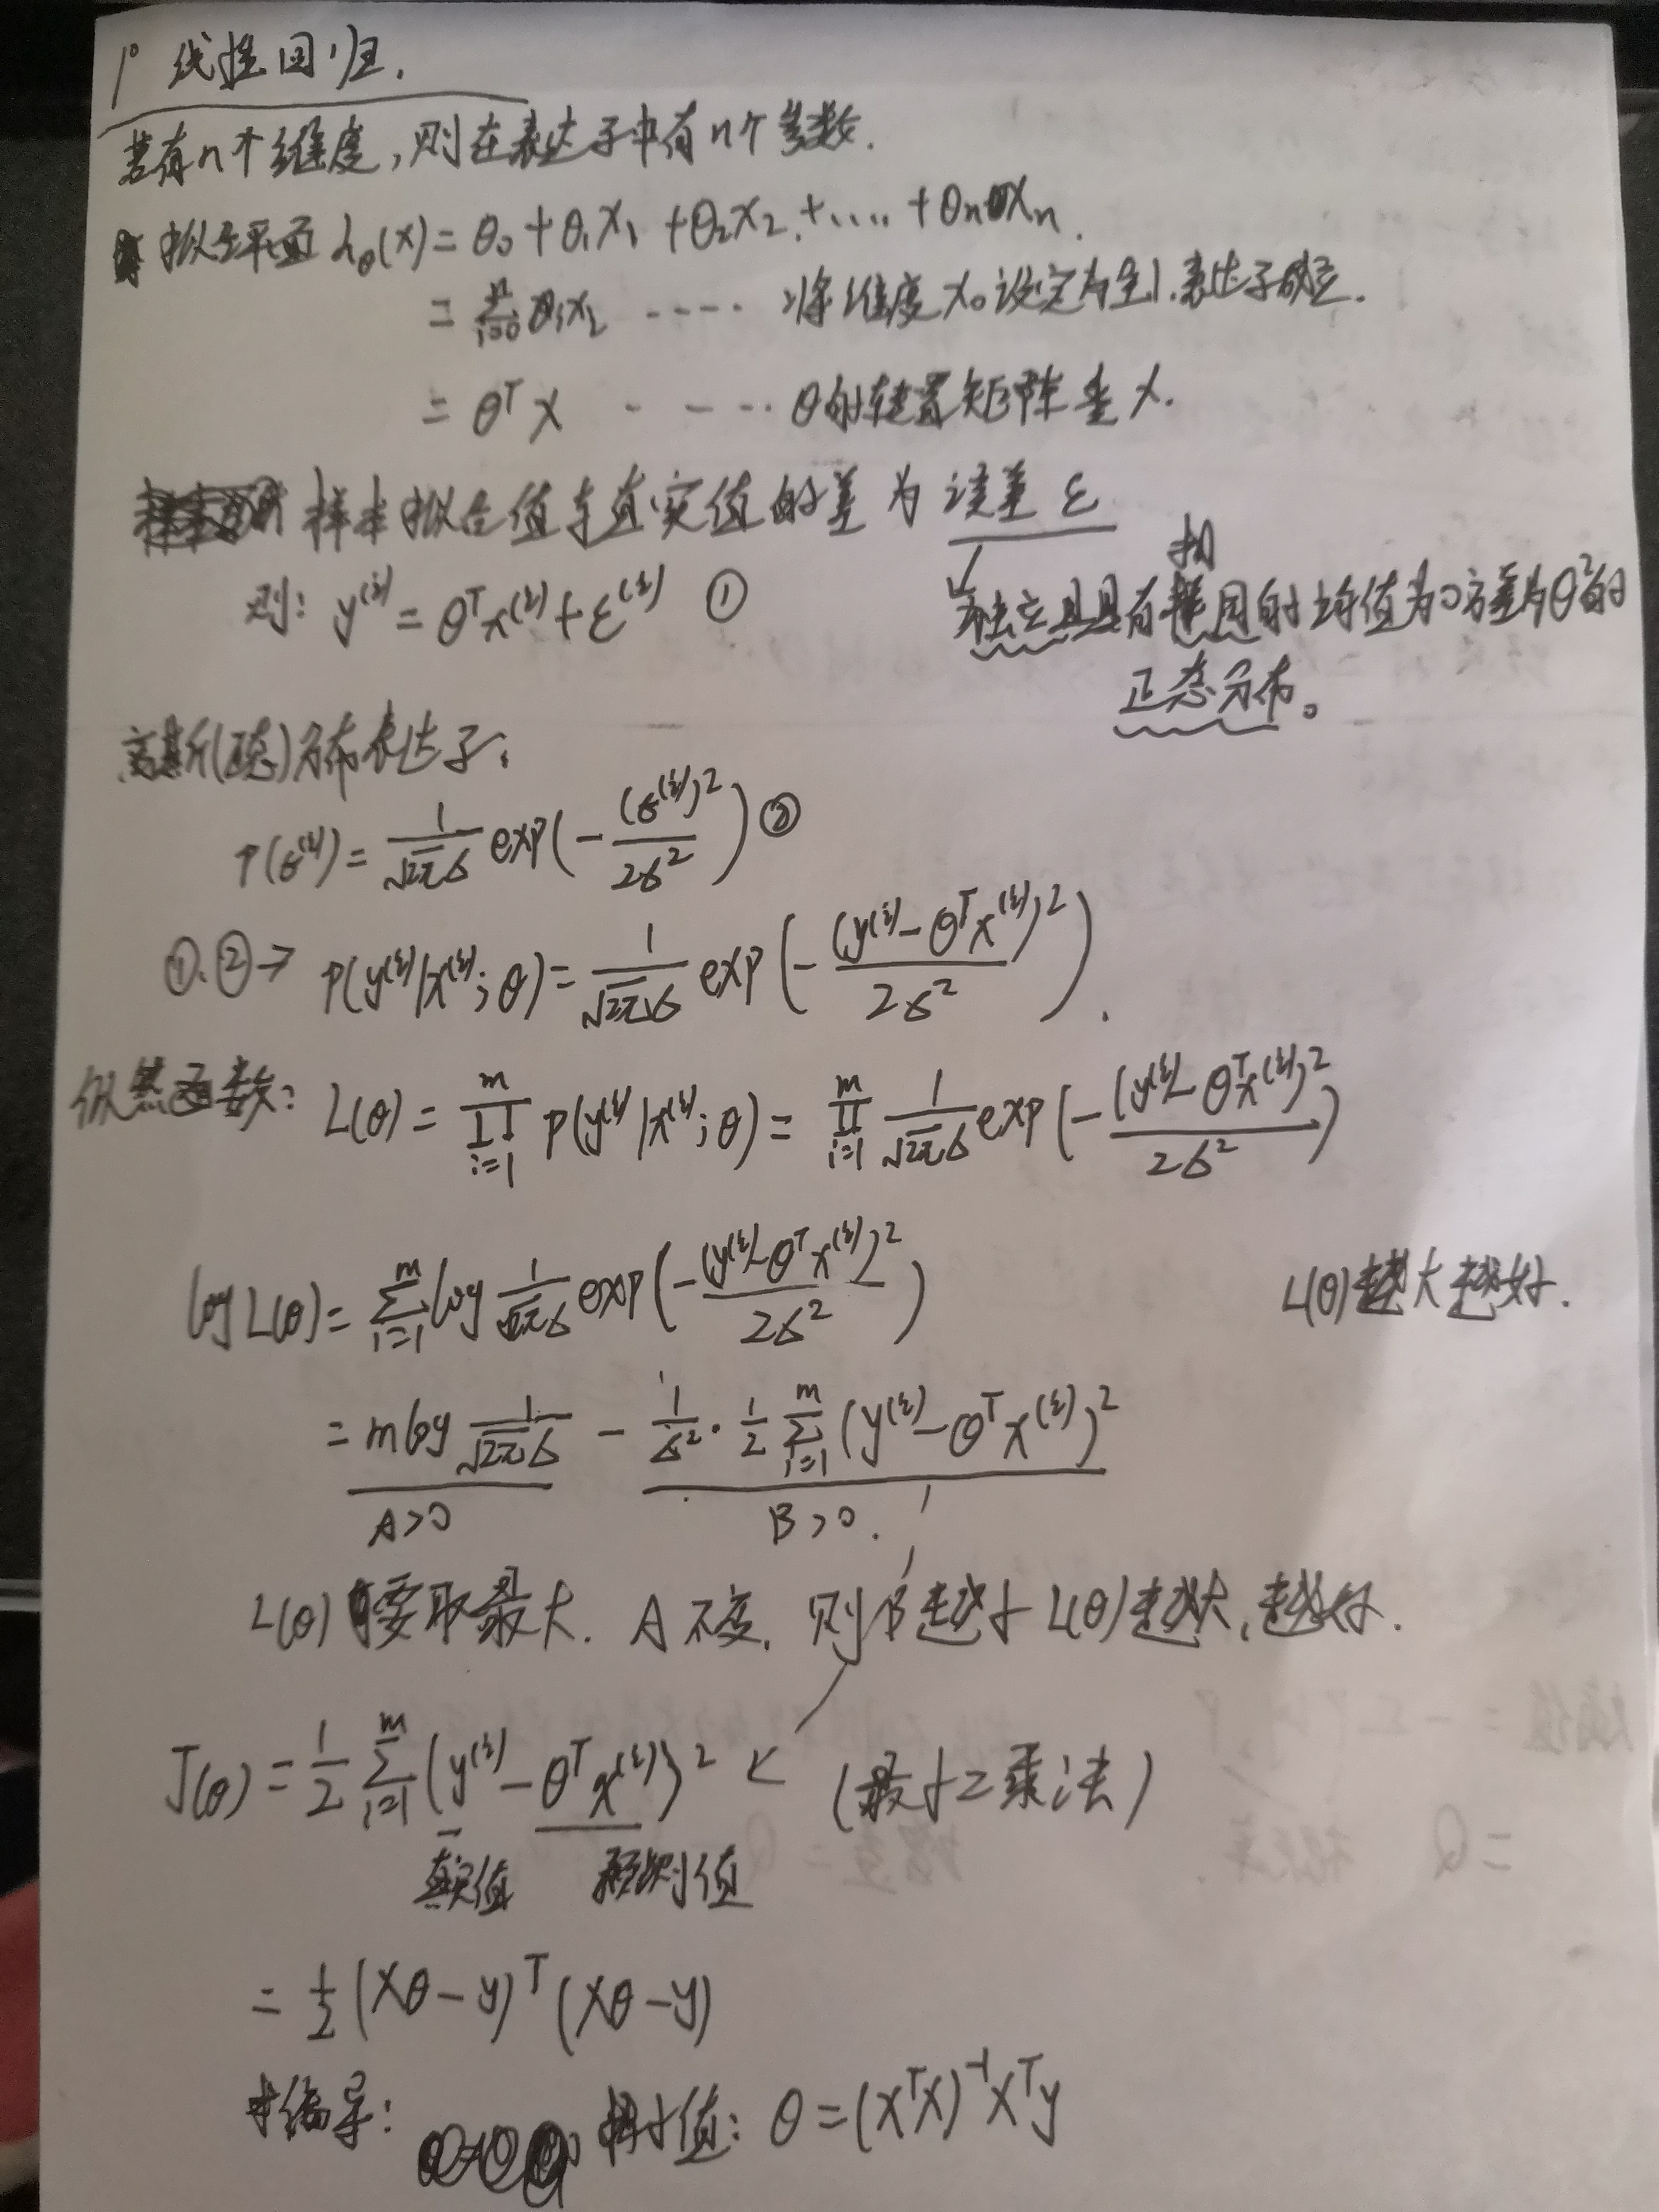 1° 线性回归.
若有n个维度,则在表达子中有n个参数.
拟合平面 hθ(x)= θ₀ + θ₁x₁ + θ₂x₂ + .... + θnxn.
= Σ(i=0→n) θᵢxᵢ ····· 将维度x₀设定为全1.表达子成立.
= θᵀx - - - ··· θ的转置矩阵乘x.
样本拟合值与真实值的差为误差 ε
则: y⁽ⁱ⁾ = θᵀx⁽ⁱ⁾ + ε⁽ⁱ⁾ ①
独立且具有相同的均值为0方差为θ²的
正态分布。
高斯(正态)分布表达子:
P(ε⁽ⁱ⁾) = 1/(√2π σ) exp(- (ε⁽ⁱ⁾)²/2σ²) ②
①.② → P(y⁽ⁱ⁾|x⁽ⁱ⁾; θ) = 1/(√2π σ) exp(- (y⁽ⁱ⁾ - θᵀx⁽ⁱ⁾)²/2σ²).
似然函数: L(θ) = Π(i=1→m) P(y⁽ⁱ⁾|x⁽ⁱ⁾; θ) = Π(i=1→m) 1/(√2π σ) exp(- (y⁽ⁱ⁾ - θᵀx⁽ⁱ⁾)²/2σ²)
log L(θ) = Σ(i=1→m) log 1/(√2π σ) exp(- (y⁽ⁱ⁾ - θᵀx⁽ⁱ⁾)²/2σ²) L(θ)越大越好.
= m log 1/(√2π σ) - 1/σ² · 1/2 Σ(i=1→m) (y⁽ⁱ⁾ - θᵀx⁽ⁱ⁾)²
A>0 B>0.
L(θ)要取最大. A不变, 则B越小L(θ)越大,越好.
J(θ) = 1/2 Σ(i=1→m) (y⁽ⁱ⁾ - θᵀx⁽ⁱ⁾)² (最小二乘法)
真实值 预测值
= 1/2 (Xθ - y)ᵀ (Xθ - y)
求偏导: 极小值: θ = (XᵀX)⁻¹Xᵀy